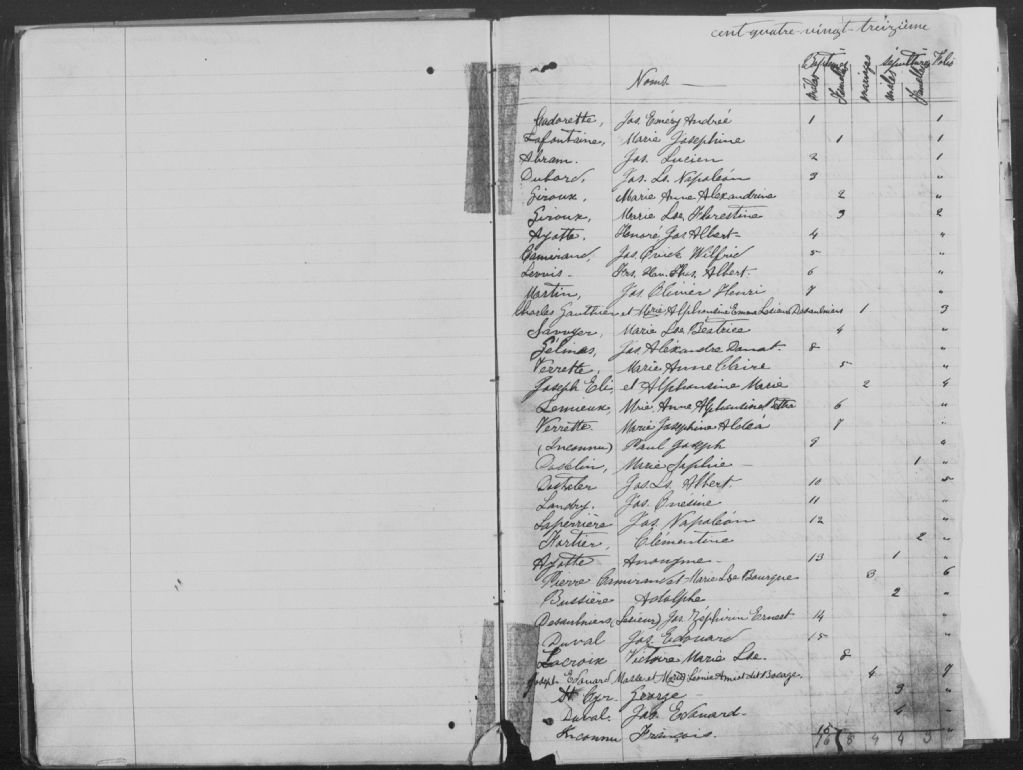 cent quatre-vingt-treizième
Noms Baptêmes mâles femelles mariages sépultures mâles femelles Folio
Cadorette, Jos. Eméry André 1 1
Lafontaine, Marie Josephine 1 1
Abram. Jos. Lucien 2 1
Dubord, Jos. Ls. Napoléon 3 "
Giroux, Marie Anne Alexandrine 2 "
Giroux, Marie Lse Florestine 3 2
Ayotte. Honoré Jos Albert 4 "
Camirand, Jos. Ovide Wilfrid 5 "
Lewis - Frs. Hen. Ths. Albert 6 "
Martin, Jos. Olivier Henri 7 "
Charles Gauthier et Marie Alphonsine Emma Lesieur Desaulniers 1 3
Marie Lse Béatrice 4 "
Gélinas, Jos. Alexandre Donat. 8 "
Verrette, Marie Anne Claire 5 "
Joseph Eli, et Alphonsine Marie 2 4
Lemieux, Mrie. Anne Alphonsine 6 "
Verrette Marie Josephine Aldéa 7 "
(Inconnu) Paul Joseph 9 "
Josselin, Marie Sophie 1 "
Jos. Ls. Albert. 10 5
Landry. Jos. Onésime 11 "
Laperrière Jos. Napoléon 12 "
Fortier, Clémentine 2 "
Ayotte Anonyme - 13 1 "
Pierre Camirand et Marie Lse Bourque 3 6
Bussière Adolphe 2 "
Desaulniers (Lesieur) Jos. Zéphirin Ernest 14 "
Duval Jos. Edouard 15 "
Lacroix Victoire Marie Lse. 8 "
Joseph Edouard Masse et Marie Léonie Amiot dit Bocage. 4 7
St Cyr George - 3 "
Duval. Jos. Edouard. 4 "
Inconnu François. 16 8 4 4 3 "